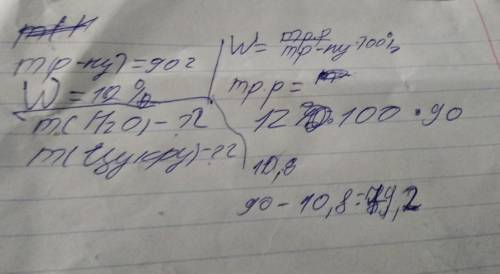 m(р-ну) = 90г
W = 12%
m(H₂O) - ?
m(цукру) - ?
W = m р.р / m р-ну · 100%
m р.р =
12% : 100 · 90
10,8
90 - 10,8 = 79,2